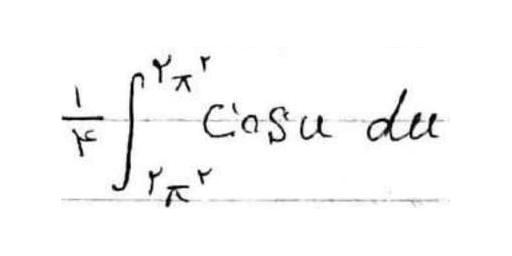 ۱/۴ ∫_{۲π^۲}^{۲π^۲} Cosu du